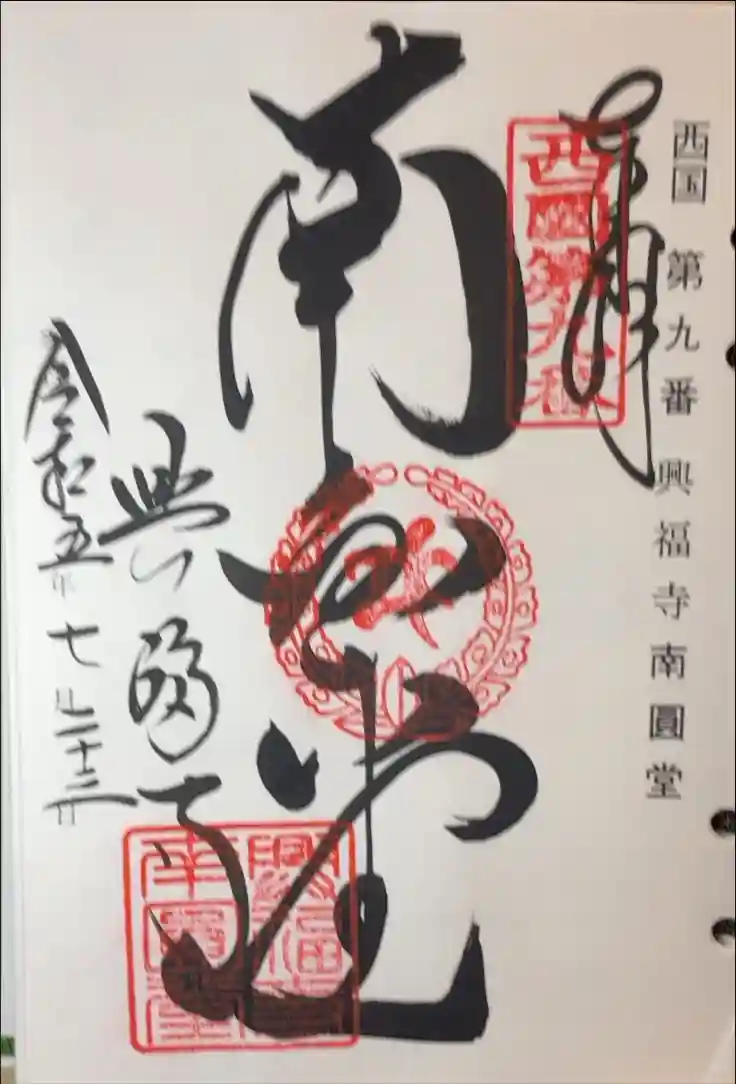 西国 第九番 興福寺南圓堂
奉拝
西國第九番
南圓堂
興福寺
令和五年七月二十三日
興福寺
南圓堂